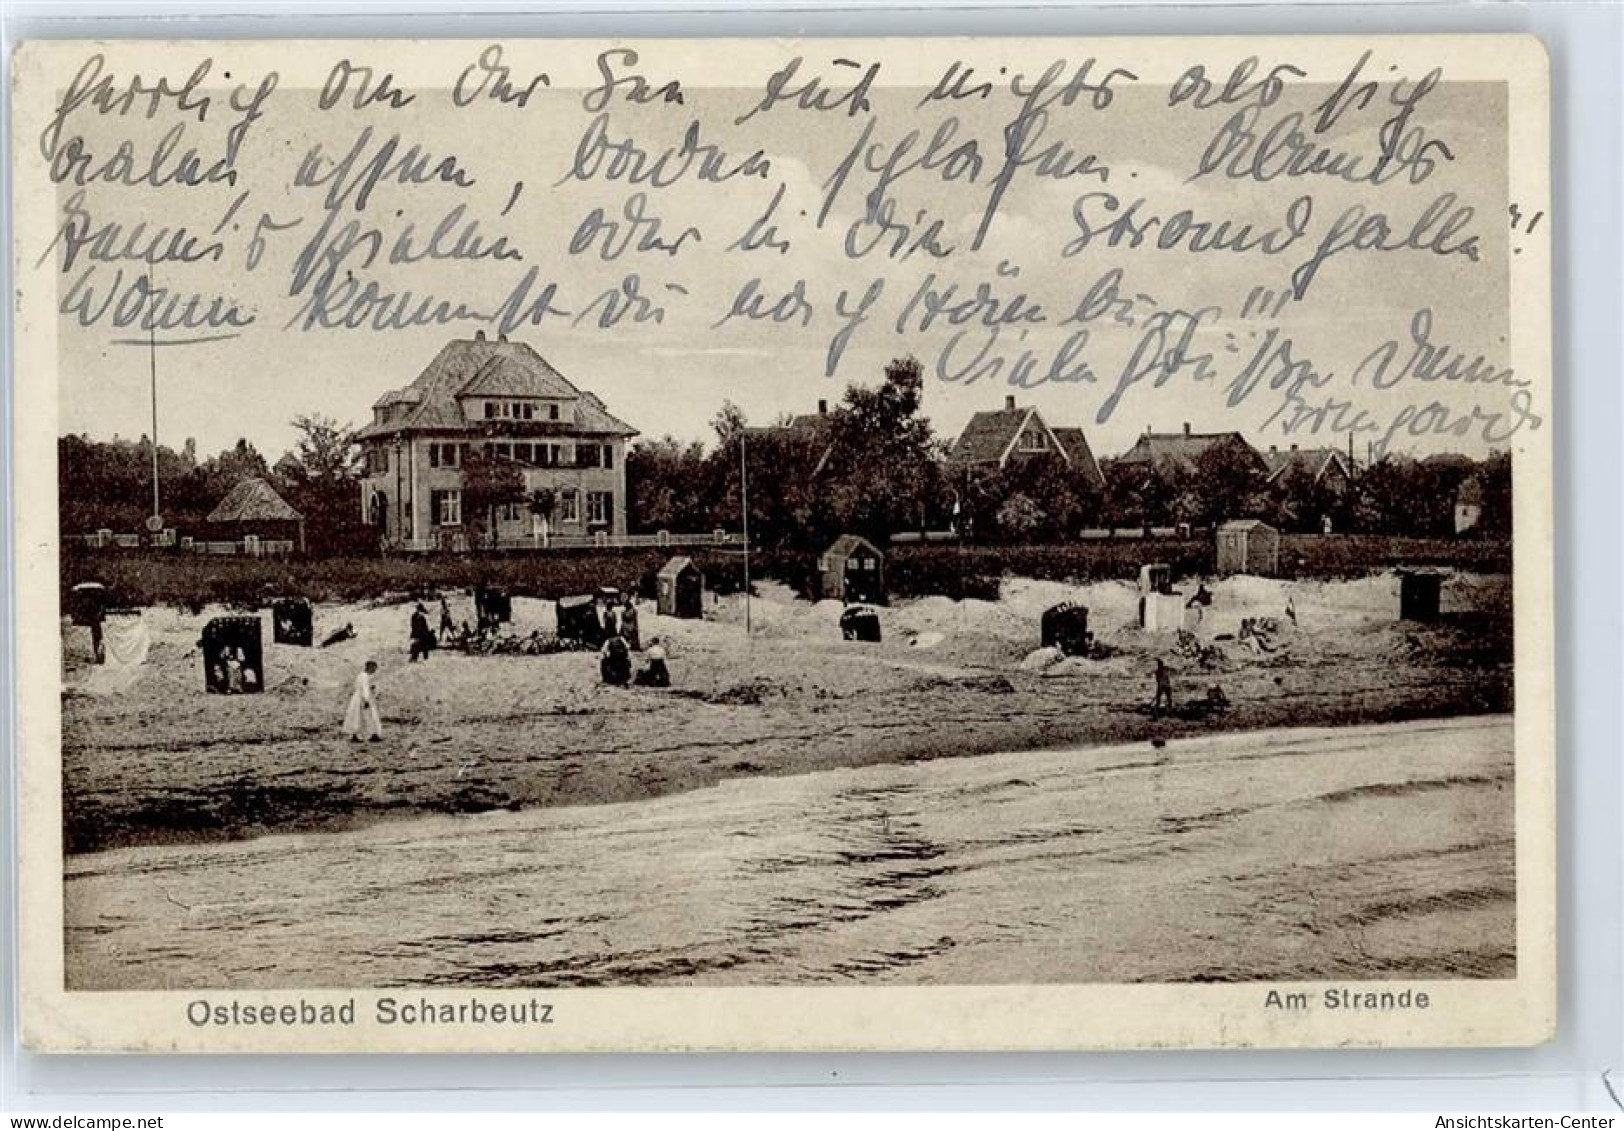 herrlich an der See tut nichts als sich
aalen, essen, baden, schlafen. Abends
Tennis spielen oder in die „Strandhalle"!
Wann kommst Du nach Hamburg!!!
Viele Grüße Deine
Irmgard
Ostseebad Scharbeutz
Am Strande
oldthing.de
Ansichtskarten-Center